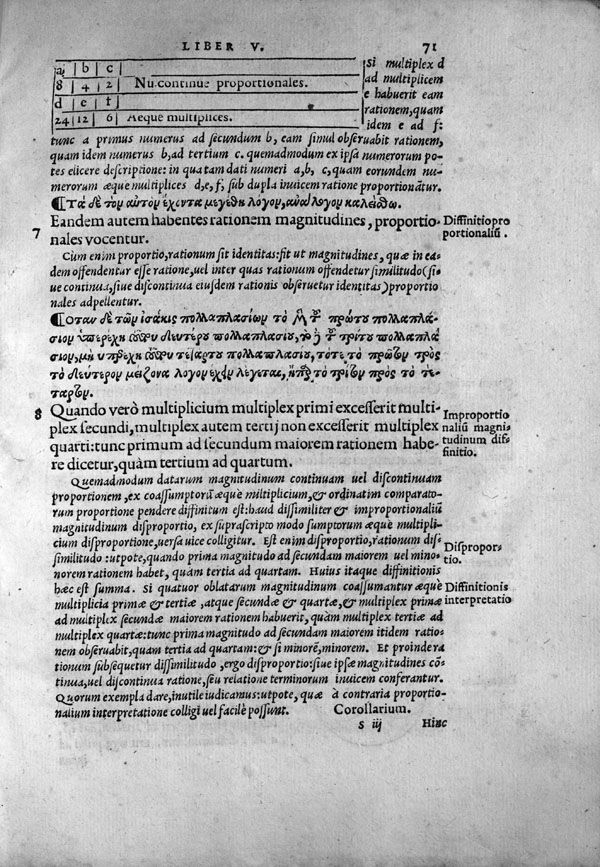 LIBER V. 71
a | b | c |
8 | 4 | 2 | Nu. continue proportionales.
d | e | f |
24 | 12 | 6 | Aeque multiplices.
si multiplex d
ad multiplicem
e habuerit eam
rationem, quam
idem e ad f:
tunc a primus numerus ad secundum b, eam simul obseruabit rationem,
quam idem numerus b, ad tertium c. quemadmodum ex ipsa numerorum po-
tes elicere descriptione: in quatam dati numeri a, b, c, quam eorundem nu-
merorum æque multiplices d, e, f, sub dupla inuicem ratione proportionãtur.
¶Τὰ δὲ τὸν αὐτὸν ἔχοντα μεγέθη λόγον, ἀνάλογον καλείσθω.
7 Eandem autem habentes rationem magnitudines, proportio-
nales vocentur.
Diffinitio pro
portionaliũ.
Cùm enim proportio, rationum sit identitas: fit ut magnitudines, quæ in ea-
dem offendentur esse ratione, uel inter quas rationum offendetur similitudo (si-
ue continua, siue discontinua eiusdem rationis obseruetur identitas) proportio
nales adpellentur.
¶Ὅταν δὲ τῶν ἰσάκις πολλαπλασίων τὸ μὲν τοῦ πρώτου πολλαπλά-
σιον ὑπερέχῃ τοῦ τοῦ δευτέρου πολλαπλασίου, τὸ δὲ τοῦ τρίτου πολλαπλά
σιον, μὴ ὑπερέχῃ τοῦ τοῦ τετάρτου πολλαπλασίου, τότε τὸ πρῶτον πρὸς
τὸ δεύτερον μείζονα λόγον ἔχειν λέγεται, ἤπερ τὸ τρίτον πρὸς τὸ τέ-
ταρτον.
8 Quando verò multiplicium multiplex primi excesserit multi-
plex secundi, multiplex autem tertij non excesserit multiplex
quarti: tunc primum ad secundum maiorem rationem habe-
re dicetur, quàm tertium ad quartum.
Improportio
naliũ magni-
tudinum dif-
finitio.
Quemadmodum datarum magnitudinum continuam uel discontinuam
proportionem, ex coassumptorũ æque multiplicium, & ordinatim comparato-
rum proportione pendere diffinitum est: haud dissimiliter & improportionaliũ
magnitudinum disproportio, ex suprascripto modo sumptorum æque multipli-
cium disproportione, uersa uice colligitur. Est enim disproportio, rationum dis-
similitudo: utpote, quando prima magnitudo ad secundam maiorem uel mino-
norem rationem habet, quàm tertia ad quartam. Huius itaque diffinitionis
hæc est summa. Si quatuor oblatarum magnitudinum coassumantur æquè
multiplicia primæ & tertiæ, atque secundæ & quartæ, & multiplex primæ
ad multiplex secundæ maiorem rationem habuerit, quàm multiplex tertiæ ad
multiplex quartæ: tunc prima magnitudo ad secundam maiorem itidem ratio-
nem obseruabit, quàm tertia ad quartam: & si minorẽ, minorem. Et proindera
tionum subsequetur dissimilitudo, ergo disproportio: siue ipsæ magnitudines cõ-
tinua, uel discontinua ratione, seu relatione terminorum inuicem conferantur.
Quorum exempla dare, inutile iudicamus: utpote, quæ à contraria proportio-
nalium interpretatione colligi uel facilè possunt.
Dispropor-
tio.
Diffinitionis
interpretatio
Corollarium.
S iij Hinc